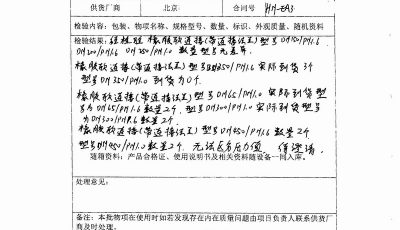 供货厂商 北京 合同号 HN-EA3
检验内容：包装、物项名称、规格型号、数量、标识、外观质量、随机资料
检验结果：经检验 橡胶软连接(带连接法兰) 型号 DN150/P1.6
DN200/P1.6 DN350/P1.0 数量型号无差异.
橡胶软连接(带连接法兰) 型号DN250/P1.6 实际到货3个
型号DN350/P1.0 到货为0个.
橡胶软连接(带连接法兰) 型号DN65/P1.0 实际到货型
为DN65/P1.6 数量2个. 型号DN300/P1.0 实际到货型号
为DN300/P1.6 数量2个.
橡胶软连接(带连接法兰) 型号DN450/P1.6 数量2个
型号DN450/P1.0 数量2个. 无法区分压力项 待澄清.
随箱资料：产品合格证、使用说明书及相关资料随设备一同入库。
处理意见：
备注：本批物项在使用时如若发现存在内在质量问题由项目负责人联系供货厂
商及时处理。